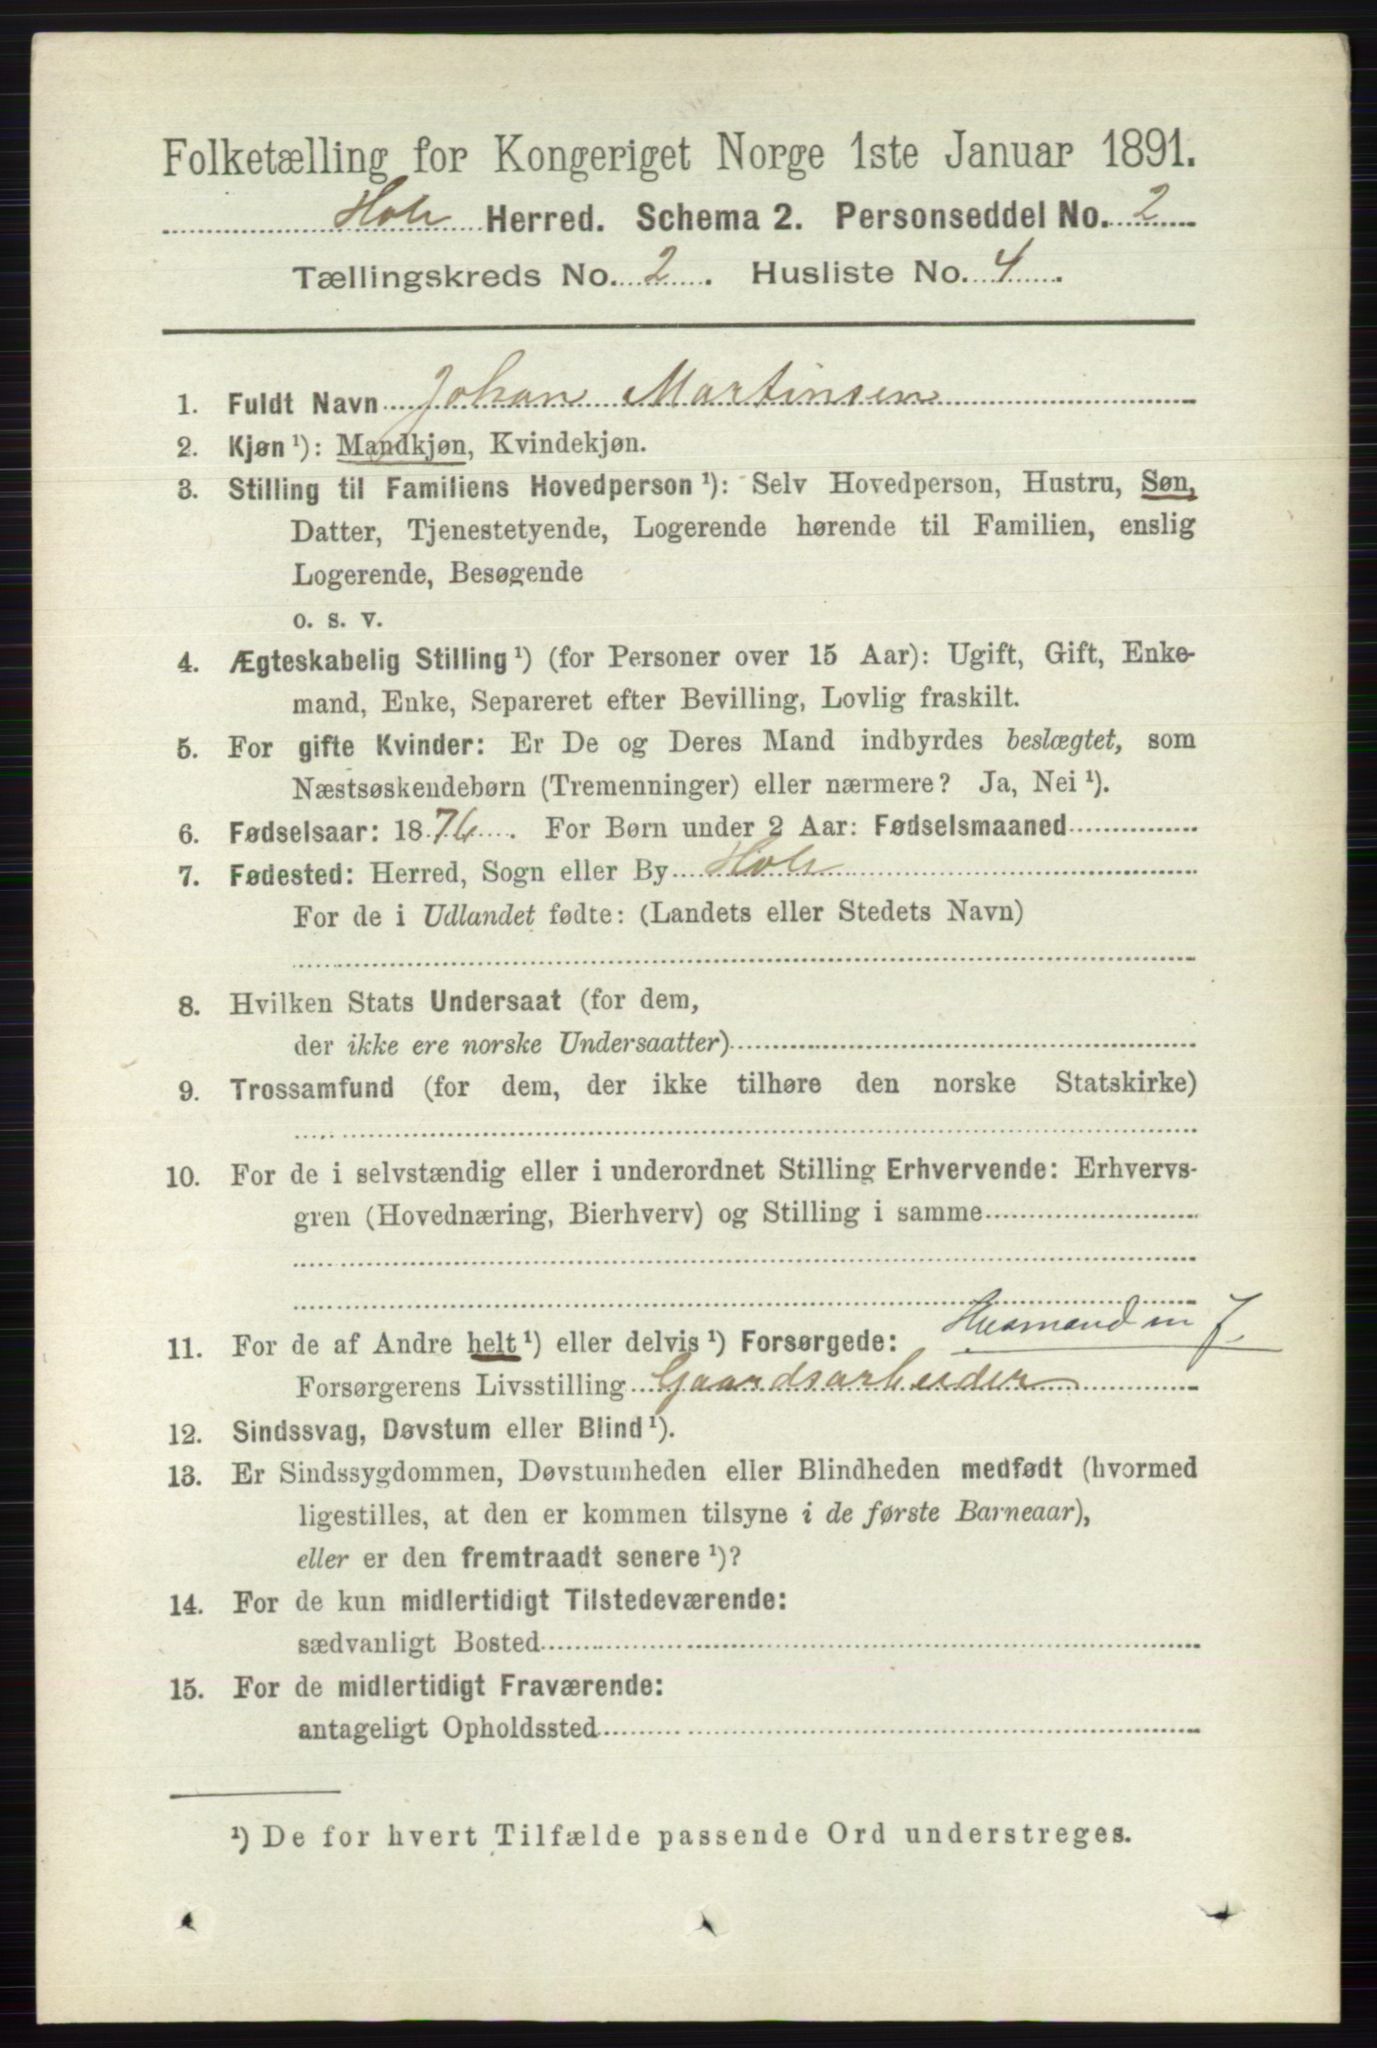 Folketælling for Kongeriget Norge 1ste Januar 1891.
Hole Herred. Schema 2. Personseddel No. 2
Tællingskreds No. 2. Husliste No. 4.
1. Fuldt Navn Johan Martinsen
2. Kjøn ¹): Mandkjøn, Kvindekjøn.
3. Stilling til Familiens Hovedperson ¹): Selv Hovedperson, Hustru, Søn,
Datter, Tjenestetyende, Logerende hørende til Familien, enslig
Logerende, Besøgende
o. s. v.
4. Ægteskabelig Stilling ¹) (for Personer over 15 Aar): Ugift, Gift, Enke-
mand, Enke, Separeret efter Bevilling, Lovlig fraskilt.
5. For gifte Kvinder: Er De og Deres Mand indbyrdes beslægtet, som
Næstsøskendebørn (Tremenninger) eller nærmere? Ja, Nei ¹).
6. Fødselsaar: 1876. For Børn under 2 Aar: Fødselsmaaned
7. Fødested: Herred, Sogn eller By Hole
For de i Udlandet fødte: (Landets eller Stedets Navn)
8. Hvilken Stats Undersaat (for dem,
der ikke ere norske Undersaatter)
9. Trossamfund (for dem, der ikke tilhøre den norske Statskirke)
10. For de i selvstændig eller i underordnet Stilling Erhvervende: Erhvervs-
gren (Hovednæring, Bierhverv) og Stilling i samme
Husmand m J.
11. For de af Andre helt ¹) eller delvis ¹) Forsørgede:
Forsørgerens Livsstilling Gaardsarbeider
12. Sindssvag, Døvstum eller Blind ¹).
13. Er Sindssygdommen, Døvstumheden eller Blindheden medfødt (hvormed
ligestilles, at den er kommen tilsyne i de første Barneaar),
eller er den fremtraadt senere ¹)?
14. For de kun midlertidigt Tilstedeværende:
sædvanligt Bosted
15. For de midlertidigt Fraværende:
antageligt Opholdssted
¹) De for hvert Tilfælde passende Ord understreges.